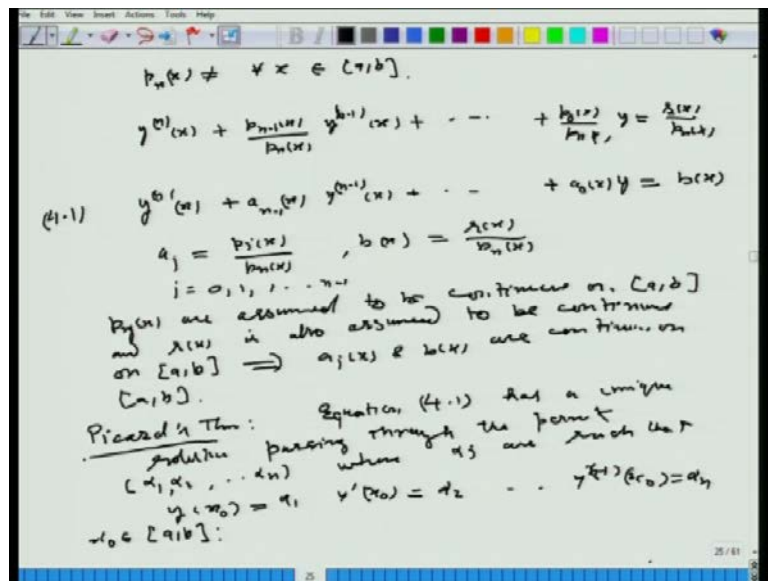 File Edit View Insert Actions Tools Help
pₙ(x) ≠ ∀ x ∈ [a,b].
y⁽ⁿ⁾(x) + pₙ₋₁(x)/pₙ(x) y⁽ⁿ⁻¹⁾(x) + - - - + p₀(x)/pₙ(x) y = r(x)/pₙ(x)
(4.1) y⁽ⁿ⁾(x) + aₙ₋₁(x) y⁽ⁿ⁻¹⁾(x) + - - + a₀(x) y = b(x)
aⱼ = pⱼ(x)/pₙ(x) , b(x) = r(x)/pₙ(x)
j = 0, 1, , . . n-1
pⱼ(x) are assumed to be continuous on [a,b]
and r(x) is also assumed to be continuous
on [a,b] ⟹ aⱼ(x) & b(x) are continuous on
[a,b].
Picard's Thm: Equation (4.1) has a unique
solution passing through the point
(α₁, α₂, . . αₙ) where αⱼ are such that
y(x₀) = α₁ y'(x₀) = α₂ . . y⁽ⁿ⁻¹⁾(x₀) = αₙ
x₀ ∈ [a,b]:
25/61
25